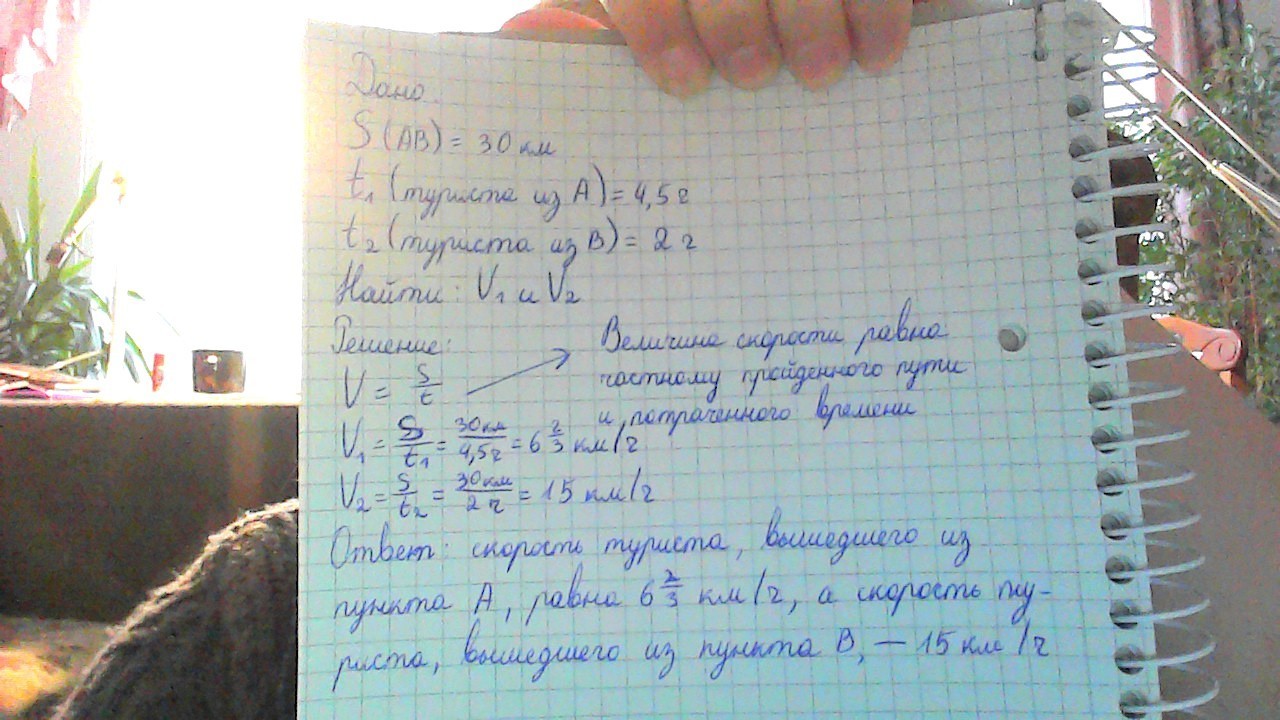 Дано.
S (AB) = 30 км
t₁ (туриста из A) = 4,5 ч
t₂ (туриста из B) = 2 ч
Найти: V₁ и V₂
Решение:
V = S/t → Величина скорости равна
частному пройденного пути
и потраченного времени
V₁ = S/t₁ = 30 км/4,5 ч = 6 2/3 км/ч
V₂ = S/t₂ = 30 км/2 ч = 15 км/ч
Ответ: скорость туриста, вышедшего из
пункта A, равна 6 2/3 км/ч, а скорость ту-
риста, вышедшего из пункта B, — 15 км/ч